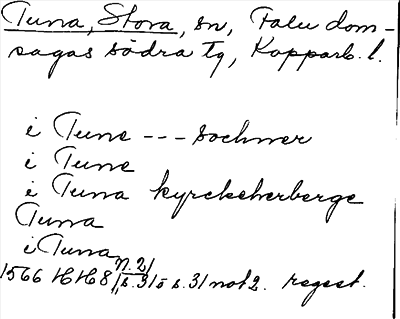 Tuna, Stora, sn, Falu dom-
sagas södra tg, Kopparb. l.
i Tune --- sochner
i Tune
i Tuna kyrckeherberge
Tuna
i Tuna
1566 HH 8 n. 2/ s. 3 s. 3 not 2. regest.